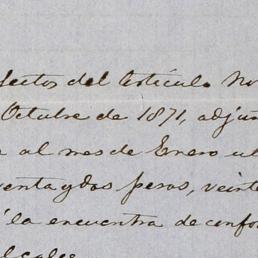 fectos del Artículo No
Octubre de 1871, adjun
al mes de Enero ul
enta y dos pesos, veint
la encuentra de confo